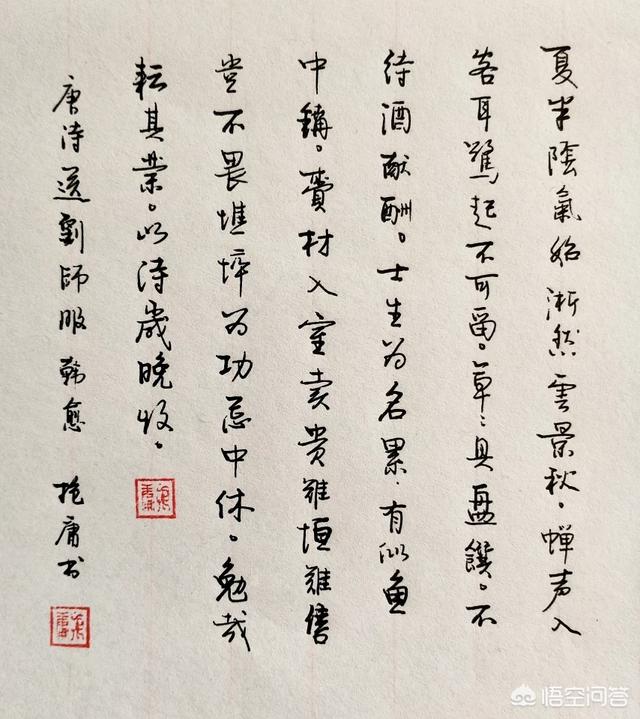 夏半陰氣始淅然雲景秋。蟬声入
客耳驚起不可留。草々具盤饌。不
待酒獻酬。士生为名累.有似魚
中。材入室卖貴恒難售
豈不畏憔悴为功忌中休。勉哉
耘其業。以待歲晚收。
唐诗送劉師服韓愈 庸书
悟空问答